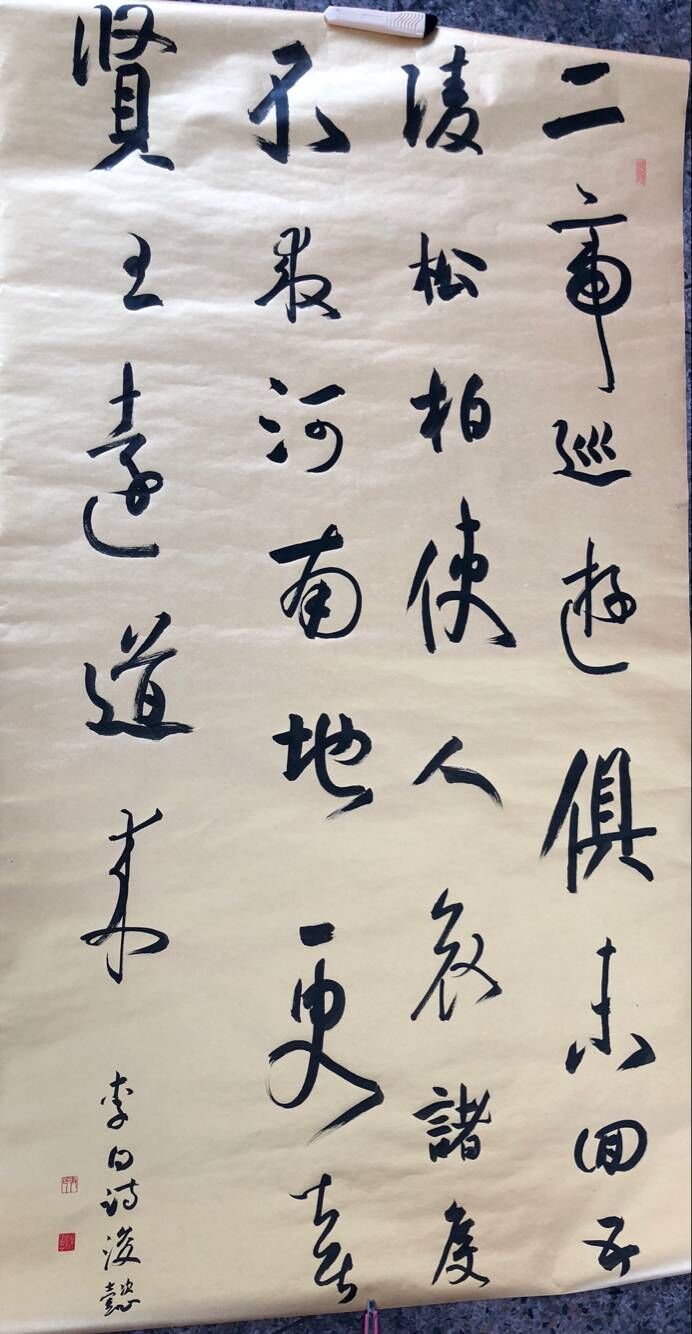 二帝巡遊俱未回五
陵松柏使人哀諸侯
不救河南地更喜
賢王遠道来
李白詩浚懿